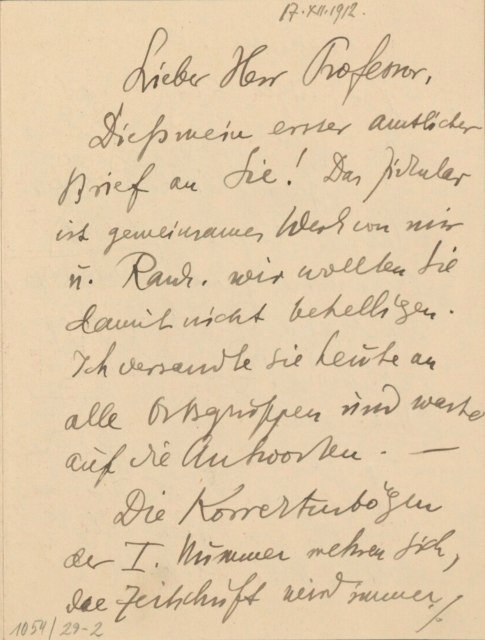 17.XII.1912.
Lieber Herr Professor,
Dieß mein erster amtlicher
Brief an Sie! Das Zirkular
ist gemeinsames Werk von mir
u. Rank. wir wollten Sie
damit nicht behelligen.
Ich versandte sie heute an
alle Ortsgruppen und warte
auf die Antworten. —
Die Korrekturbögen
der I. Nummer mehren sich,
die Zeitschrift wird immer /.
1054/29-2